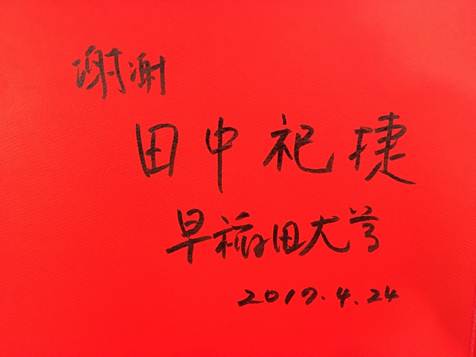 谢谢
田中祀捷
早稻田大学
2017.4.24